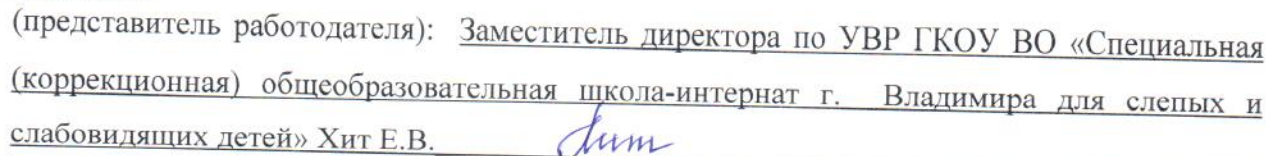 (представитель работодателя): Заместитель директора по УВР ГКОУ ВО «Специальная
(коррекционная) общеобразовательная школа-интернат г. Владимира для слепых и
слабовидящих детей» Хит Е.В. Хит